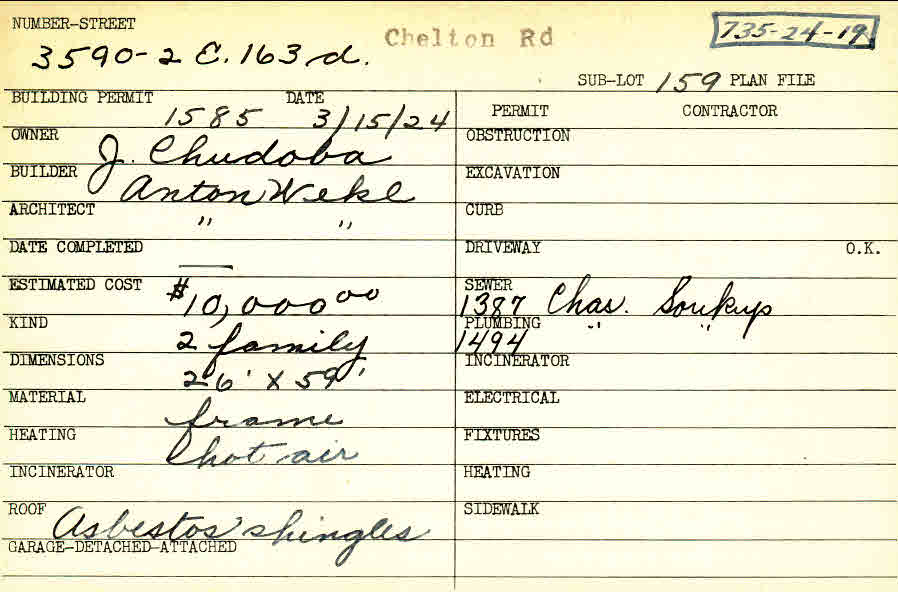 NUMBER-STREET
3590-2 E. 163 d. Chelton Rd 735-24-19
SUB-LOT 159 PLAN FILE
BUILDING PERMIT 1585 DATE 3/15/24
OWNER J. Chudoba
BUILDER Anton Wekl
ARCHITECT " "
DATE COMPLETED —
ESTIMATED COST $10,000.00
KIND 2 family
DIMENSIONS 26' X 59'
MATERIAL frame
HEATING hot air
INCINERATOR
ROOF Asbestos shingles
GARAGE-DETACHED-ATTACHED
PERMIT CONTRACTOR
OBSTRUCTION
EXCAVATION
CURB
DRIVEWAY O.K.
SEWER 1387 Chas. Soukup
PLUMBING 1494 " "
INCINERATOR
ELECTRICAL
FIXTURES
HEATING
SIDEWALK